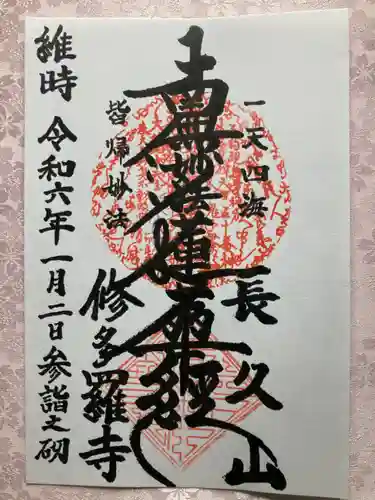 一天四海
長久山
南無妙法蓮華経
皆帰妙法
修多羅寺
維時 令和六年一月二日参詣之砌